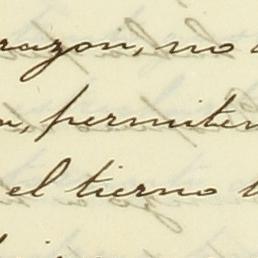 razon, no
permiten
el tierno